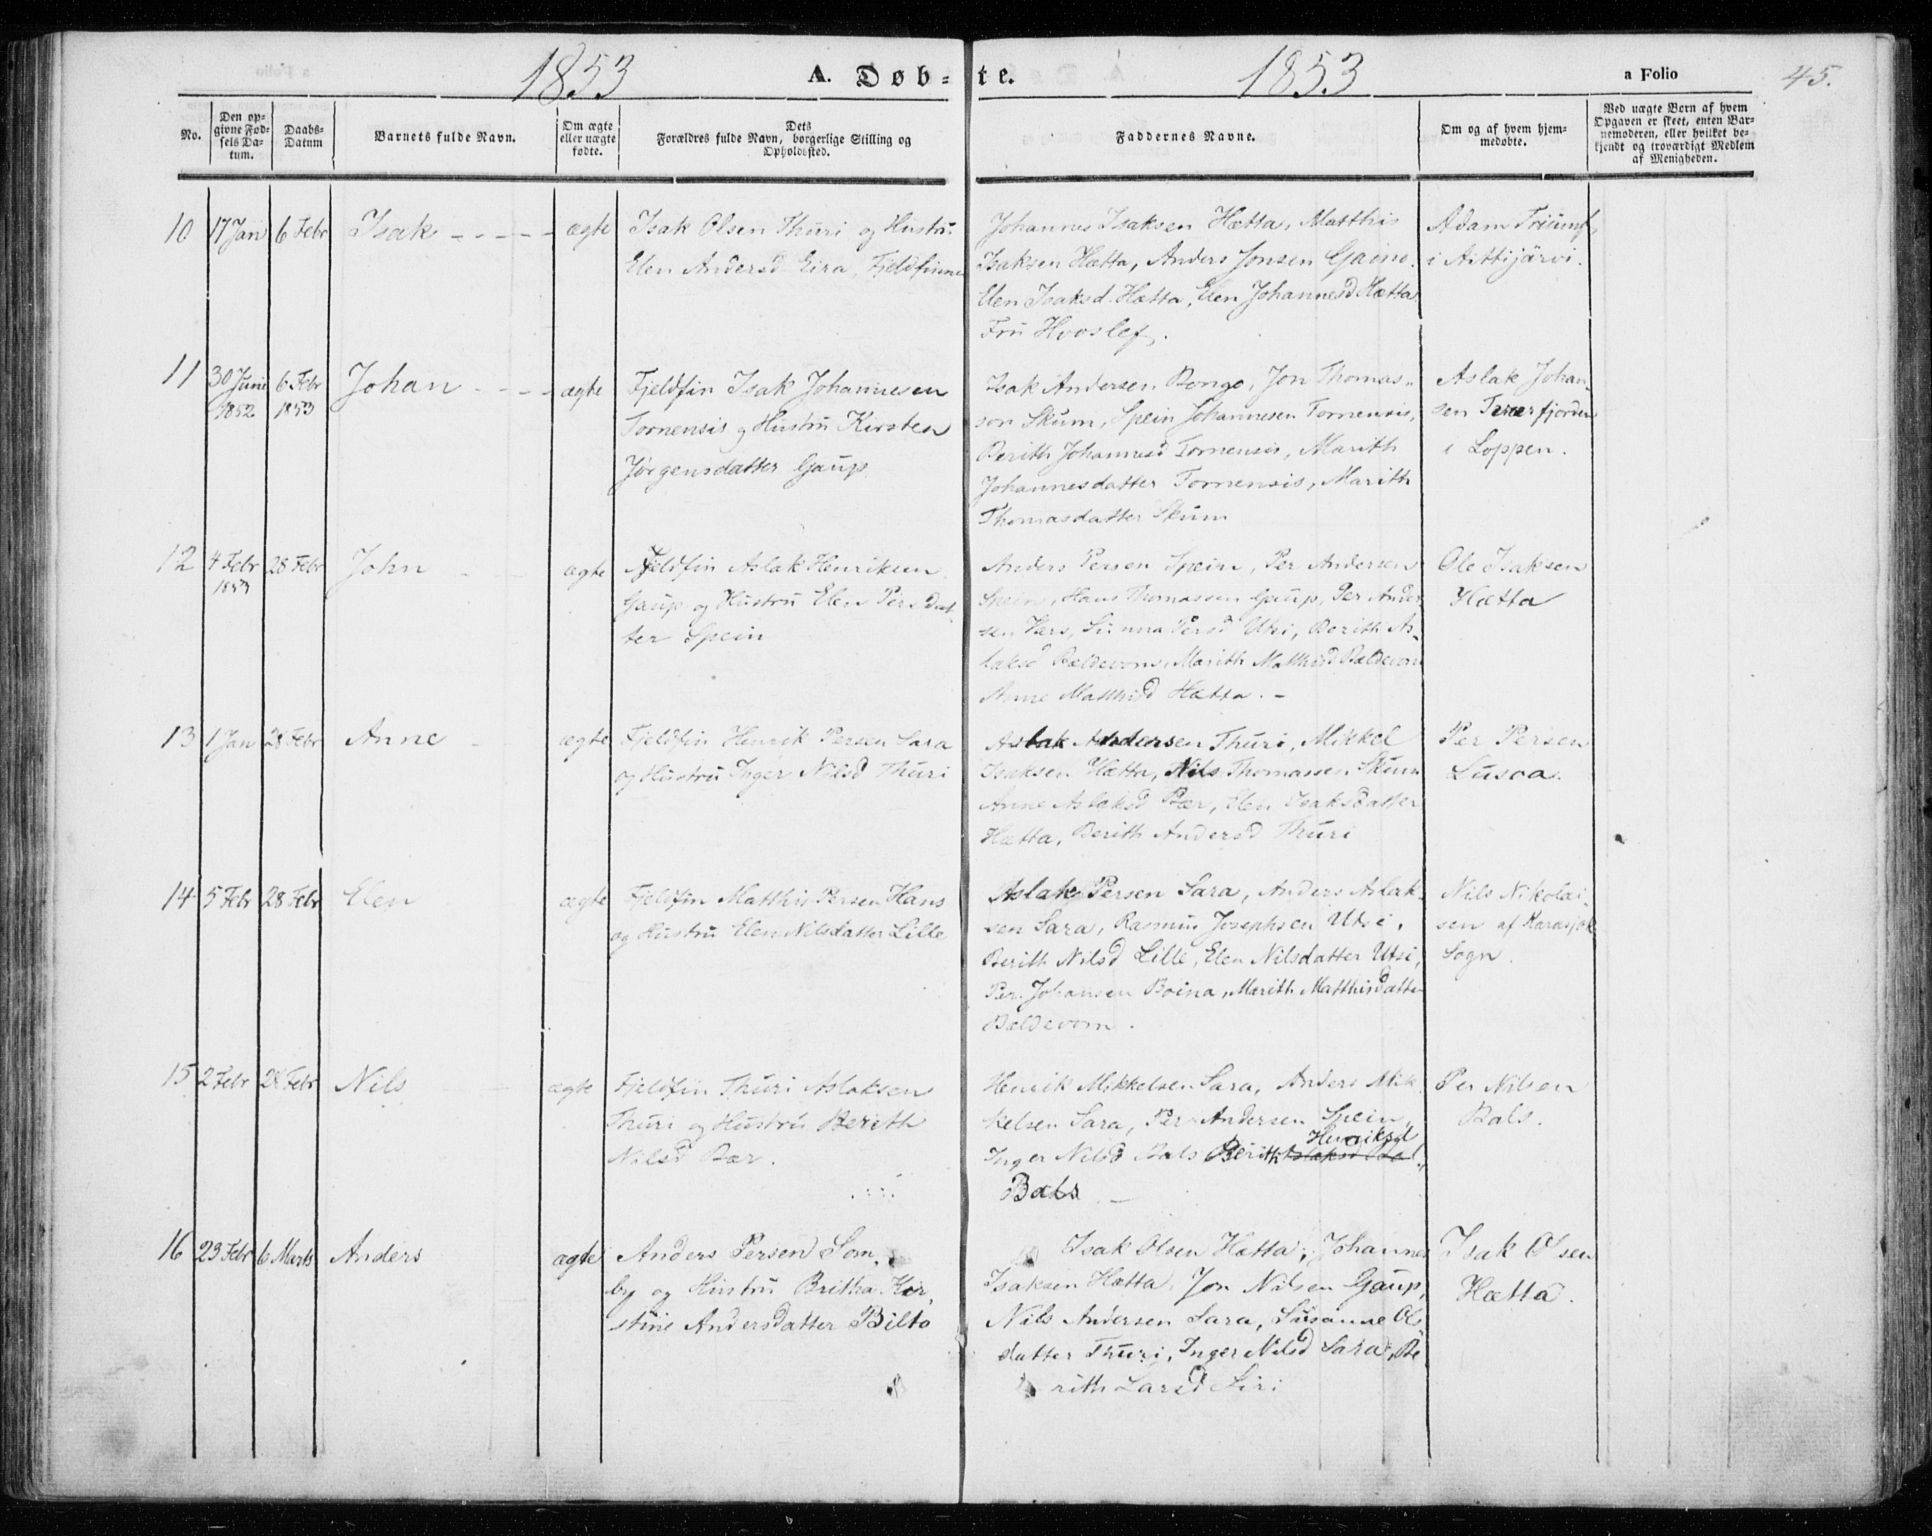 1853 A. Døb- te. 1853 a Folio 45.
No.
Den op-
givne Fød-
sels Da-
tum.
Daabs-
Datum
Barnets fulde Navn.
Om ægte
eller uægte
fødte.
Dets
Forældres fulde Navn, borgerlige Stilling og
Opholdssted.
Faddernes Navne.
Om og af hvem hjem-
medøbte.
Ved uægte Børn af hvem
Opgaven er skeet, enten Bar-
nemoderen, eller hvilket be-
kjendt og troværdigt Medlem
af Menigheden.
10 17 Jan 6 Febr Isak ægte
Isak Olsen Thuri og Hustru
Elen Andersd Eira, Fjeldfinne
Johannes Isaksen Hætta, Matthis
Isaksen Hætta, Anders Jonsen Gaino.
Elen Isaksd. Hætta, Elen Johannesd Hætta
Fru Hvoslef.
Adam Triumf,
i Aittijärvi.
11 30 Juni 1852 6 Febr 1853 Johan ægte
Fjeldfin Isak Johannesen
Tornensis og Hustru Kirsten
Jørgensdatter Gaup
Isak Andersen Bongo, Jon Thomas-
son Skum, Spein Johannesen Tornensis,
Berith Johannesd Tornensis, Marith
Johannesdatter Tornensis, Marith
Thomasdatter Skum
Aslak Johan-
sen fjorden
i Loppen.
12 4 Febr 1853 28 Febr John ægte
Fjeldfin Aslak Henriksen
Gaup og Hustru Elen Persdat-
ter Spein
Anders Persen Spein, Per Andersen
Spein, Hans Thomassen Gaup, Per Ander-
sen Vars, Sunna Persd Utsi, Berith As-
laksd Bældevom, Marith Matthisd Bældevom
Anne Matthisd Hætta. -
Ole Isaksen
Hætta
13 1 Jan 28 Febr Anne ægte
Fjeldfin Henrik Persen Sara
og Hustru Inger Nilsd Thuri
Aslak Andersen Thuri, Mikkel
Isaksen Hætta, Nils Thomassen Skum
Anne Aslaksd Bær, Elen Isaksdatter
Hætta, Berith Andersd Thuri
Per Persen
Lusoa.
14 5 Febr 28 Febr Elen ægte
Fjeldfin Matthis Persen Hans
og Hustru Elen Nilsdatter Lille
Aslak Persen Sara, Anders Aslak-
sen Sara, Rasmus Josephsen Utsi,
Berith Nilsd Lille, Elen Nilsdatter Utsi,
Per Johansen Boina, Marith Matthisdatter
Bældevom.
Nils Nikolai-
sen af Karasjok
Sogn.
15 2 Febr 28 Febr Nils ægte
Fjeldfin Thuri Aslaksen
Thuri og Hustru Berith
Nilsd Bær.
Henrik Mikkelsen Sara, Anders Mik-
kelsen Sara, Per Andersen Spein,
Henriksd
Inger Nilsd Bals Berith Aslaksd
Bals. -
Per Nilsen
Bals.
16 23 Febr 6 Marts Anders ægte
Anders Persen Som-
by og Hustru Britha Kir-
stine Andersdatter Bilto
Isak Olsen Hætta, Johannes
Isaksen Hætta, Jon Nilsen Gaup,
Nils Andersen Sara, Susanne Ols
datter Thuri, Inger Nilsd Sara, Be
rith Larsd Siri
Isak Olsen
Hætta.